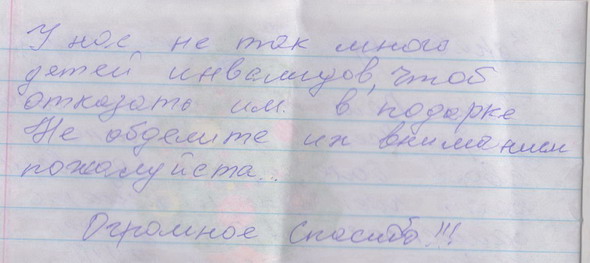 У нас не так много
детей инвалидов, чтоб
отказать им в подарке
Не обделите их внимание﻿м
пожалуйста...
Огромное спасибо!!!